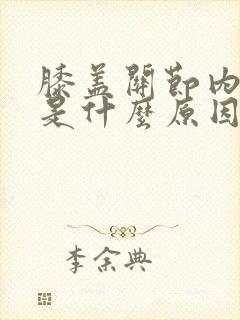 膝盖關節内
是什麼原因
李余典